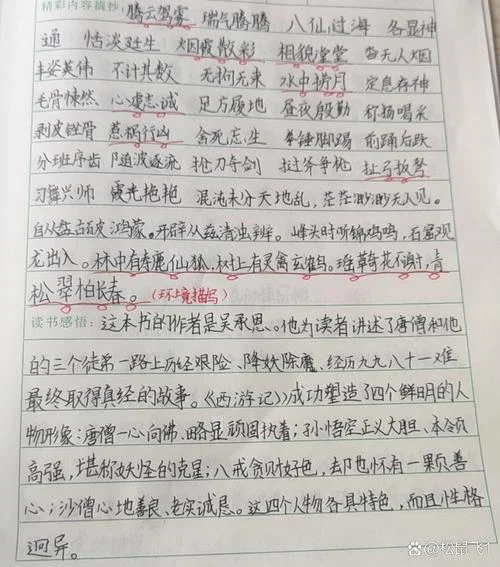 精彩内容摘抄:腾云驾雾 瑞气腾腾 八仙过海 各显神
通 恬淡延生 烟霞散彩 相貌堂堂 杳无人烟
丰姿英伟 不计其数 无拘无束 水中捞月 定息存神
毛骨悚然 心虔志诚 足方履地 昼夜殷勤 称扬喝采
剥皮锉骨 惹祸行凶 舍死忘生 拳锤脚踢 前踊后跃
分班序齿 随波逐流 抢刀夺剑 挝斧争枪 扯弓扳弩
习舞兴师 霞光艳艳 混沌未分天地乱,茫茫渺渺无人见。
自从盘古破鸿蒙。开辟从兹清浊辨。峰头时听锦鸡鸣,石窟观
龙出入。林中有寿鹿仙狐,树上有灵禽玄鹤。瑶草奇花不谢,青
松翠柏长春。(环境描写)
读书感悟:这本书的作者是吴承恩。他为读者讲述了唐僧和他
的三个徒弟一路上历经艰险、降妖除魔、经历九九八十一难
最终取得真经的故事。《西游记》成功塑造了四个鲜明的人
物形象:唐僧一心向佛、略显顽固执着;孙悟空正义大胆、本领
高强,堪称妖怪的克星;八戒贪财好色,却也怀有一颗善
心;沙僧心地善良、老实诚恳。这四个人物各具特色,而且性格
迥异。
Bai百科@松鼠飞1